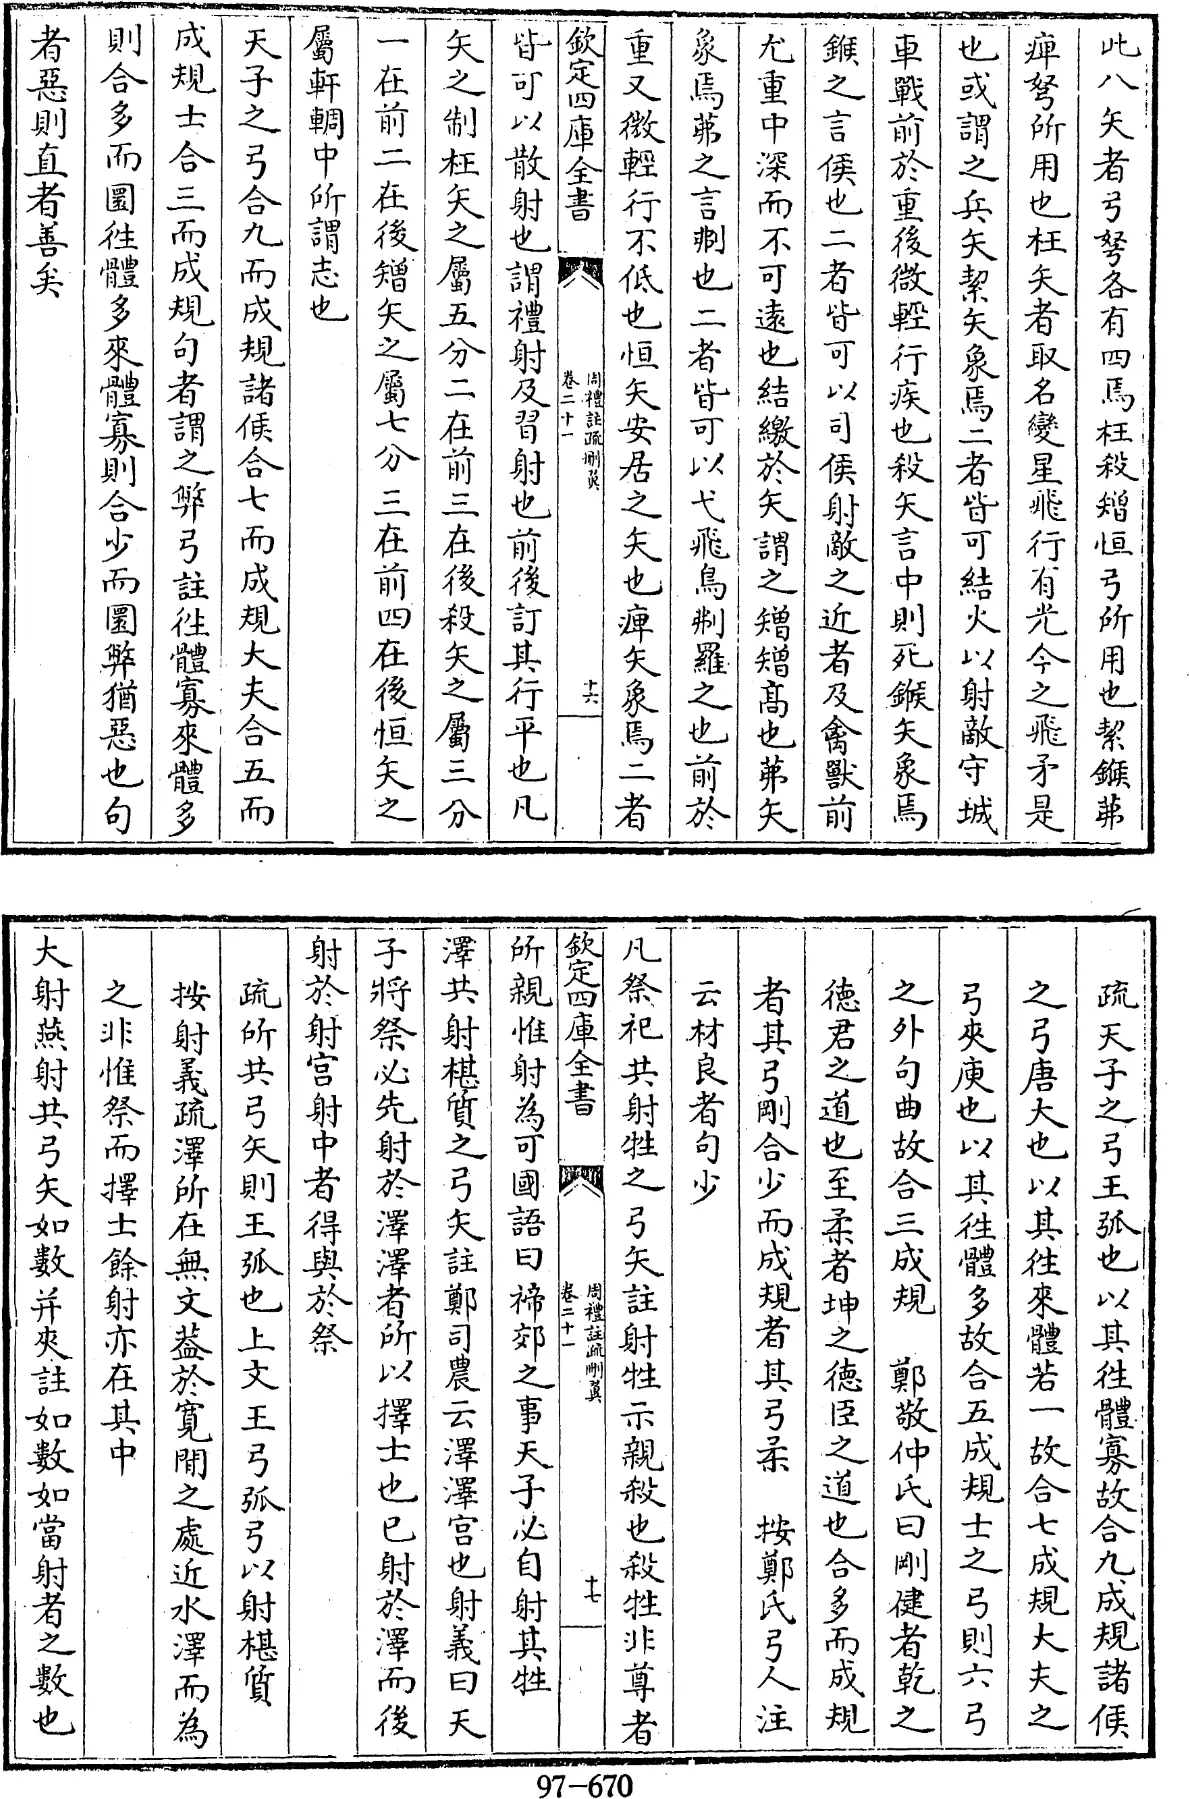 此八矢者弓弩各有四焉枉殺矰恒弓所用也絜鍭茀
痺弩所用也枉矢者取名變星飛行有光今之飛矛是
也或謂之兵矢絜矢象焉二者皆可結火以射敵守城
車戰前於重後微輕行疾也殺矢言中則死鍭矢象焉
鍭之言侯也二者皆可以司侯射敵之近者及禽獸前
尤重中深而不可遠也結繳於矢謂之矰矰高也茀矢
象焉茀之言刜也二者皆可以弋飛鳥刜羅之也前於
重又微輕行不低也恒矢安居之矢也痺矢象焉二者
欽定四庫全書
周禮註疏刪翼
卷二十一
十六
皆可以散射也謂禮射及習射也前後訂其行平也凡
矢之制枉矢之屬五分二在前三在後殺矢之屬三分
一在前二在後矰矢之屬七分三在前四在後恒矢之
屬軒輖中所謂志也
天子之弓合九而成規諸侯合七而成規大夫合五而
成規士合三而成規句者謂之弊弓註徃體寡來體多
則合多而圜徃體多來體寡則合少而圜弊猶惡也句
者惡則直者善矣
疏天子之弓王弧也以其徃體寡故合九成規諸侯
之弓唐大也以其徃來體若一故合七成規大夫之
弓夾庾也以其徃體多故合五成規士之弓則六弓
之外句曲故合三成規 鄭敬仲氏曰剛健者乾之
德君之道也至柔者坤之德臣之道也合多而成規
者其弓剛合少而成規者其弓柔 按鄭氏弓人注
云材良者句少
凡祭祀共射牲之弓矢註射牲示親殺也殺牲非尊者
欽定四庫全書
周禮註疏刪翼
卷二十一
十七
所親惟射為可國語曰禘郊之事天子必自射其牲
澤共射椹質之弓矢註鄭司農云澤澤宮也射義曰天
子將祭必先射於澤澤者所以擇士也已射於澤而後
射於射宮射中者得與於祭
疏所共弓矢則王弧也上文王弓弧弓以射椹質
按射義疏澤所在無文葢於寛閒之處近水澤而為
之非惟祭而擇士餘射亦在其中
大射燕射共弓矢如數并夾註如數如當射者之數也
97-670